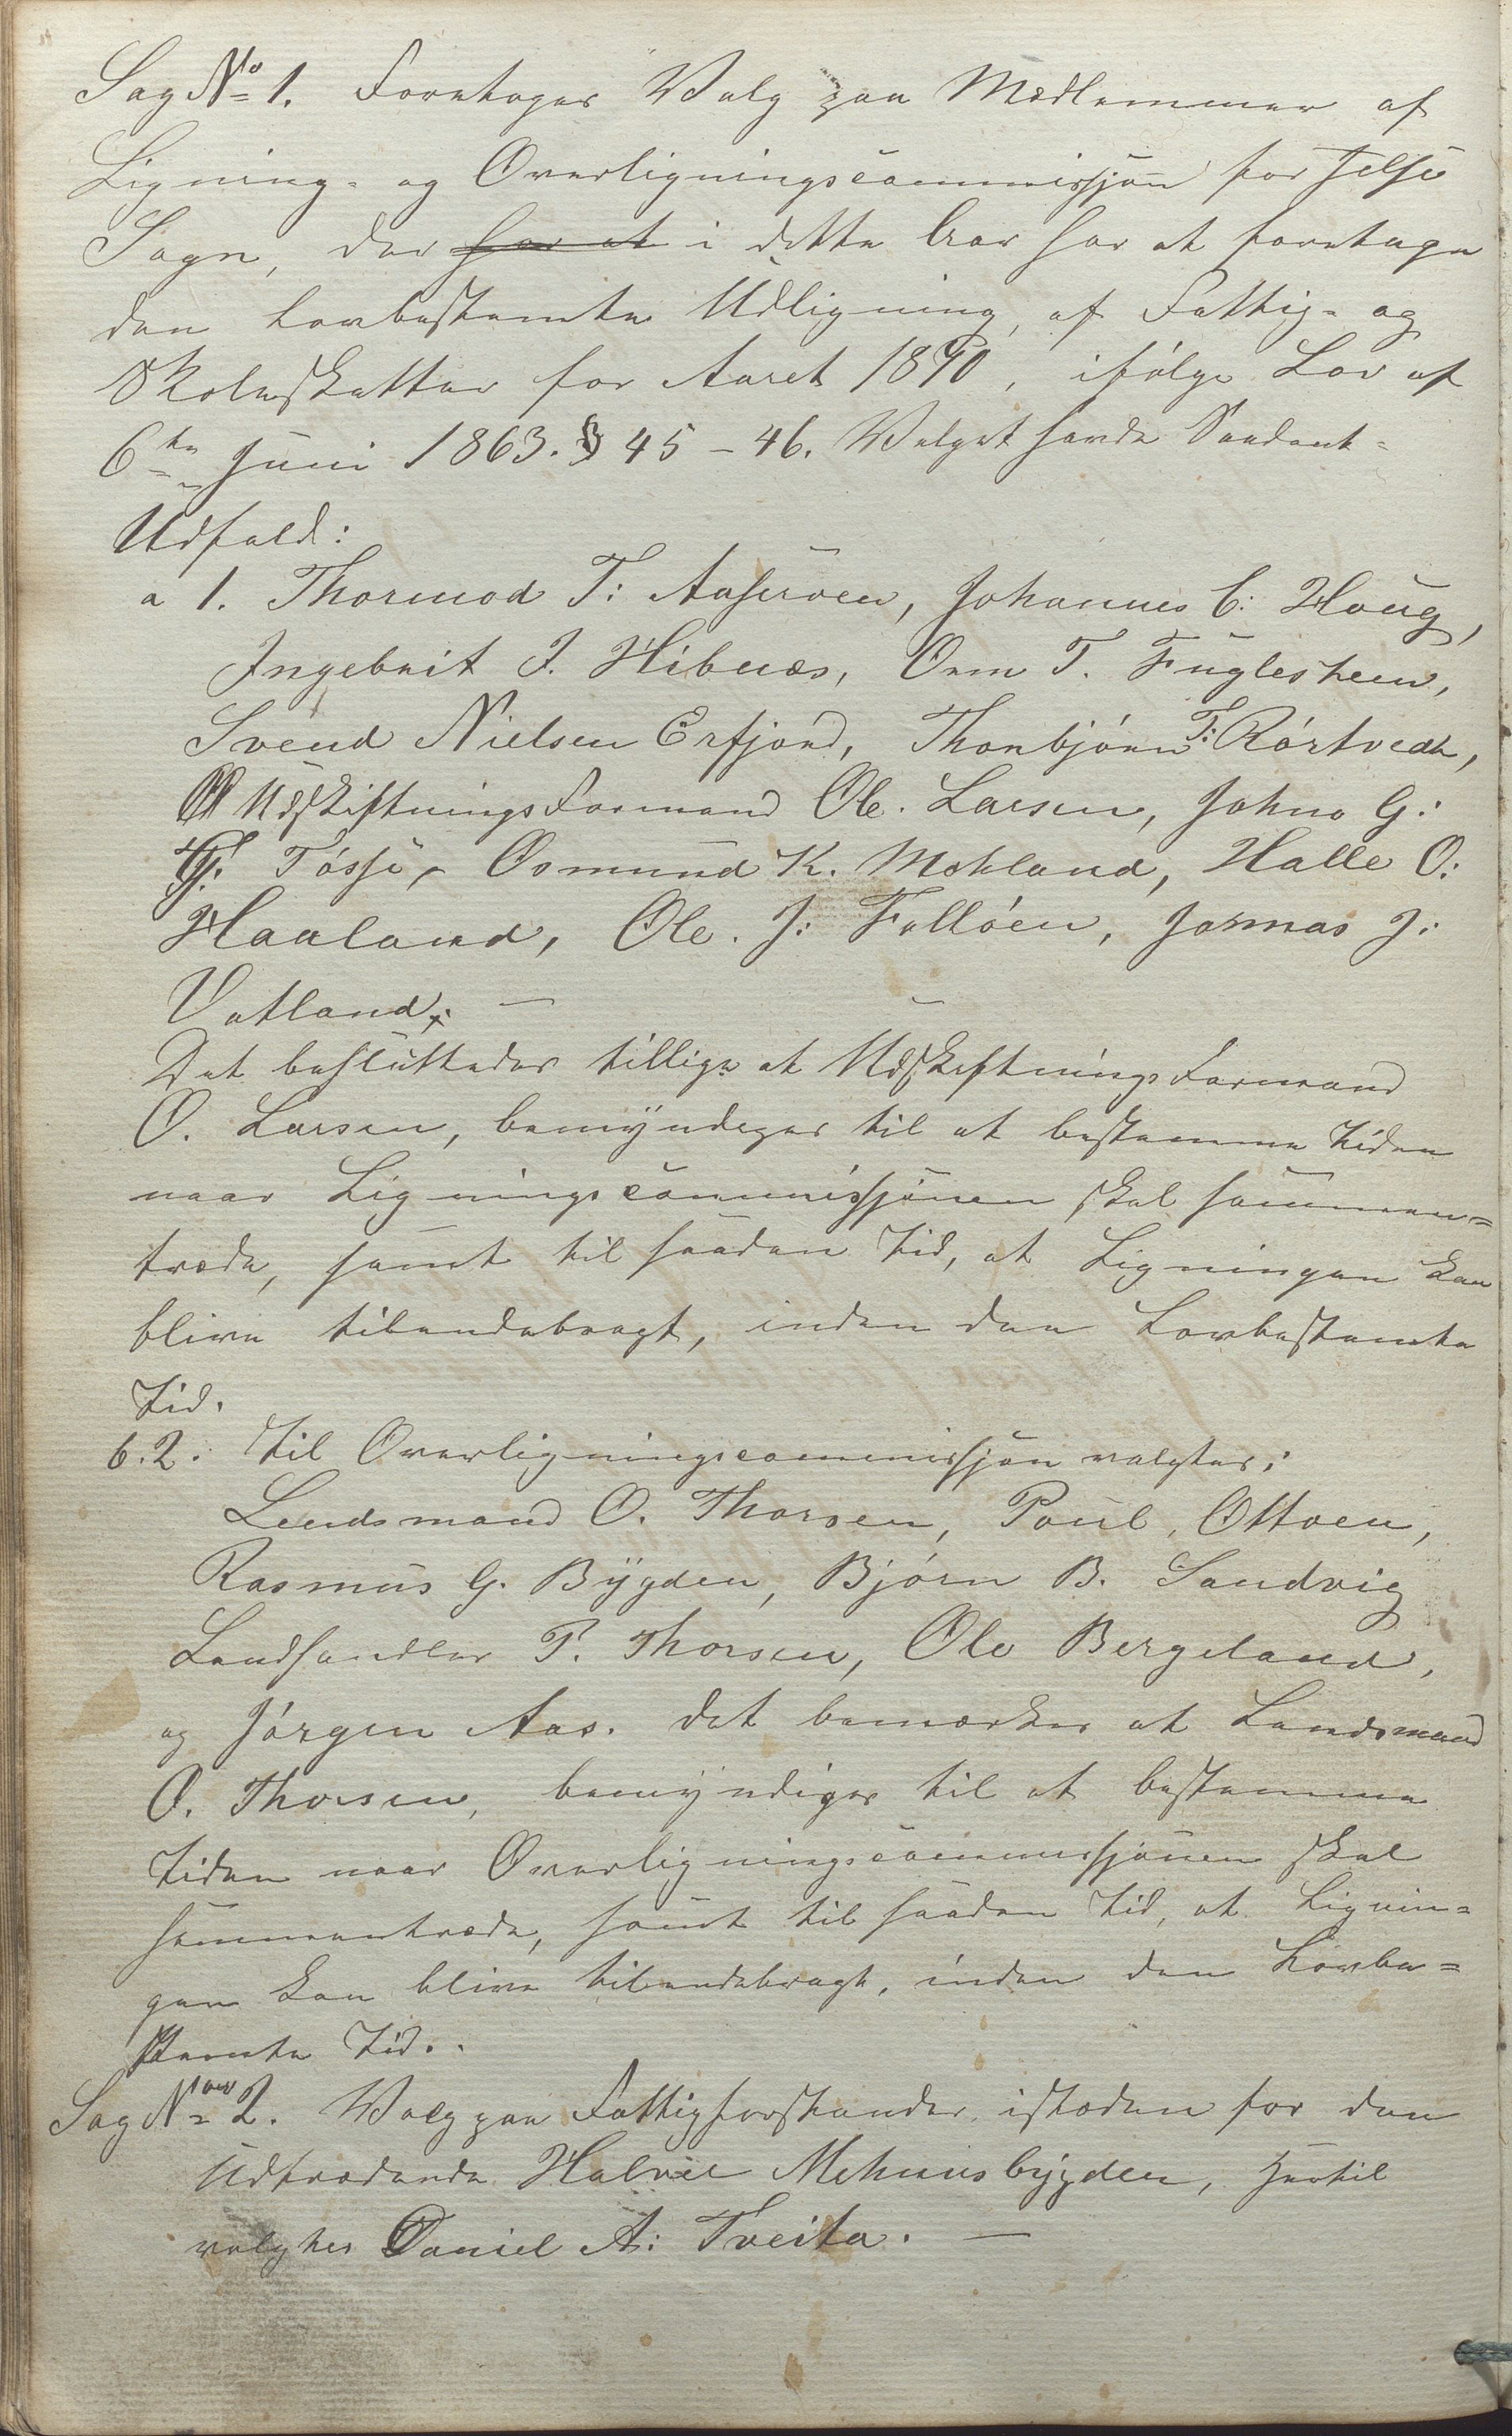 Sag No 1. Foretoges Valg paa Medlemmer af
Ligning- og Overligningscommissjon for Jelse
Sogn, der har at i dette Aar har at foretage
den lovbestemte Udligning, af Fattig- og
Skoleskatter for Aaret 1870, ifølge Lov af
6te Juni 1863. § 45-46. Valget havde Saadant-
Udfald:
a 1. Thormod T: , Johannes C: Houg,
Ingebrit J. Hibnæs, Orm T. Fuglesteen,
Svend Nielsen Erfjord, Thorbjørn T: Rørtvedt,
Udskiftningsformand Ole. Larsen, Johno G:
Tøsse, Osmund K. Mehland, Halle O:
Haaland, Ole. J: Folløen, Jonnas J:
Vatland. —
Det besluttedes tillige at Udskiftningsformand
O. Larsen, bemyndeges til at bestemme tiden
naar Ligningscommissjonen skal sammen=
træde, samt til saadan tid, at Ligningen kan
blive tilendebragt, inden den Lovbestemte
tid.
b. 2. til Overligningscommissjon valgtes:
Lendsmand O. Thorsen, Poul, Ottøen,
Rasmus G. Bygden, Bjørn B. Sandvig
Landhandler P. Thorsen, Ole Bergeland,
og Jørgen Aas. det bemærkes at Lendsmand
O. Thorsen, bemyndiges til at bestemme
tiden naar Overligningscommissjonen skal
sammentræde, samt til saadan tid, at Lignin=
gen kan blive tilendebragt, inden den Lovbe=
stemte tid..
Sag No 2. Valg paa Fattigforstander istæden for den
Udtrædende Halvor Mehuusbygden, Hertil
valgtes Daniel A: Tveita. —